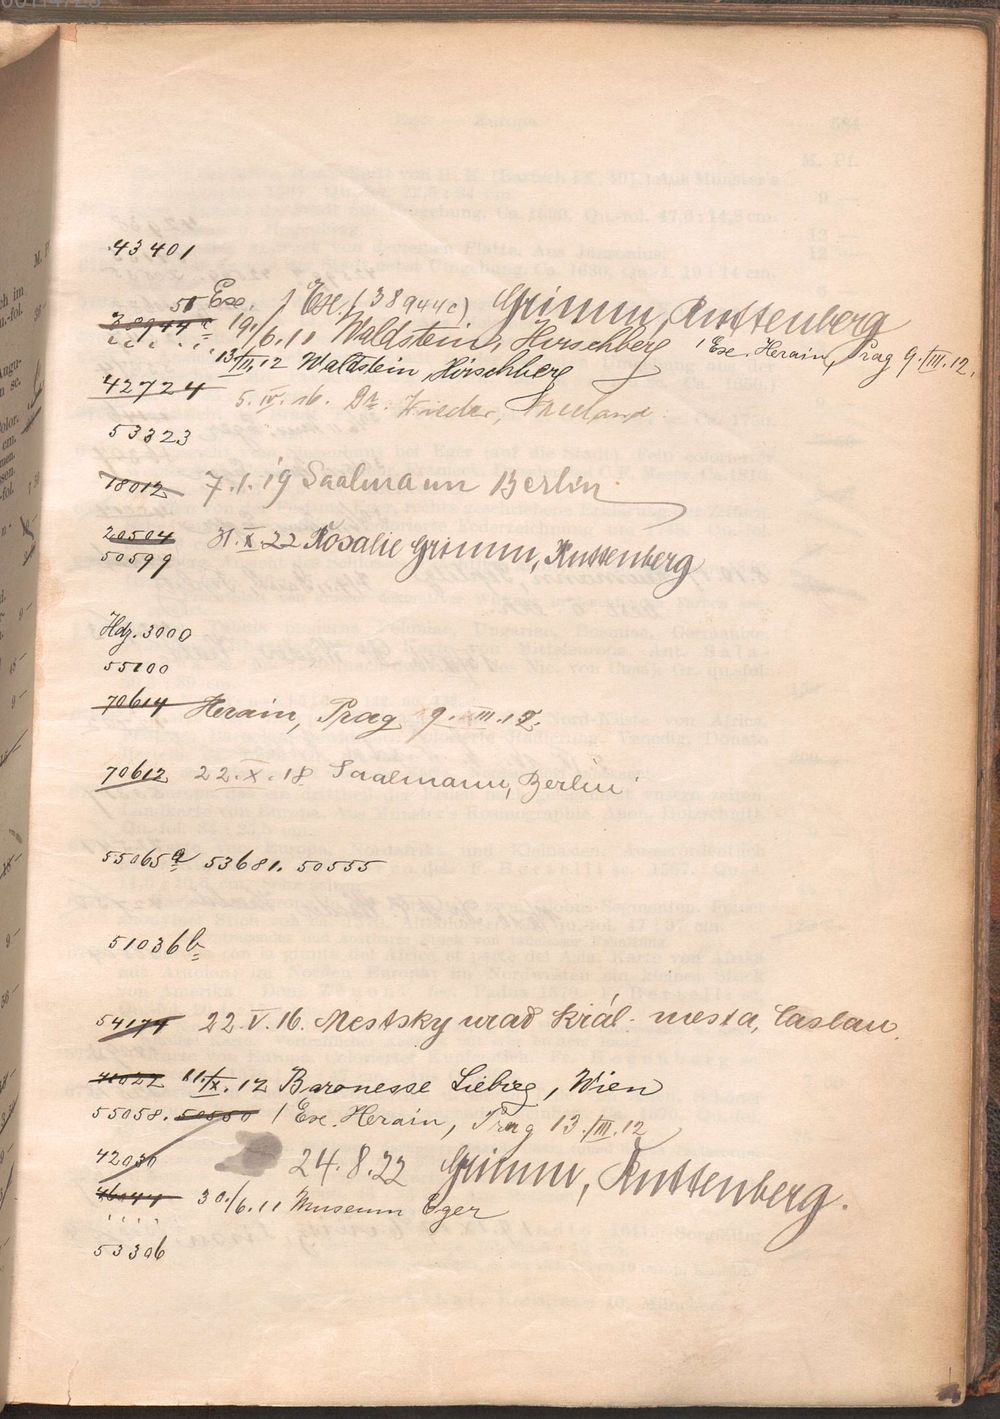 43401
5 Ex. 1 Ex. (38944c) Grimm, Kuttenberg
38944c 19./6.11 Waldstein, Hirschberg 1 Ex. Herain, Prag 9./III.12.
13./III.12 Waldstein Hirschberg
42724
5.IV.16. Dr.
53323
18012 7.1.19 Saalmann Berlin
20504 31.X.22 Rosalie Grimm, Kuttenberg
50599
Hdz. 3000
55100
70614 Herain, Prag 9.III.12.
70612 22.X.18 Saalmann, Berlin
55065a 53681. 50555
51036b
54174 22.V.16. Mestsky urad král. mesta, Caslau.
11./IX.12 Baronesse Liebieg, Wien
55058. 50550 1 Ex. Herain, Prag 13./III.12
42030 24.8.22 Grimm, Kuttenberg.
46044 30./6.11 Museum Eger
53306